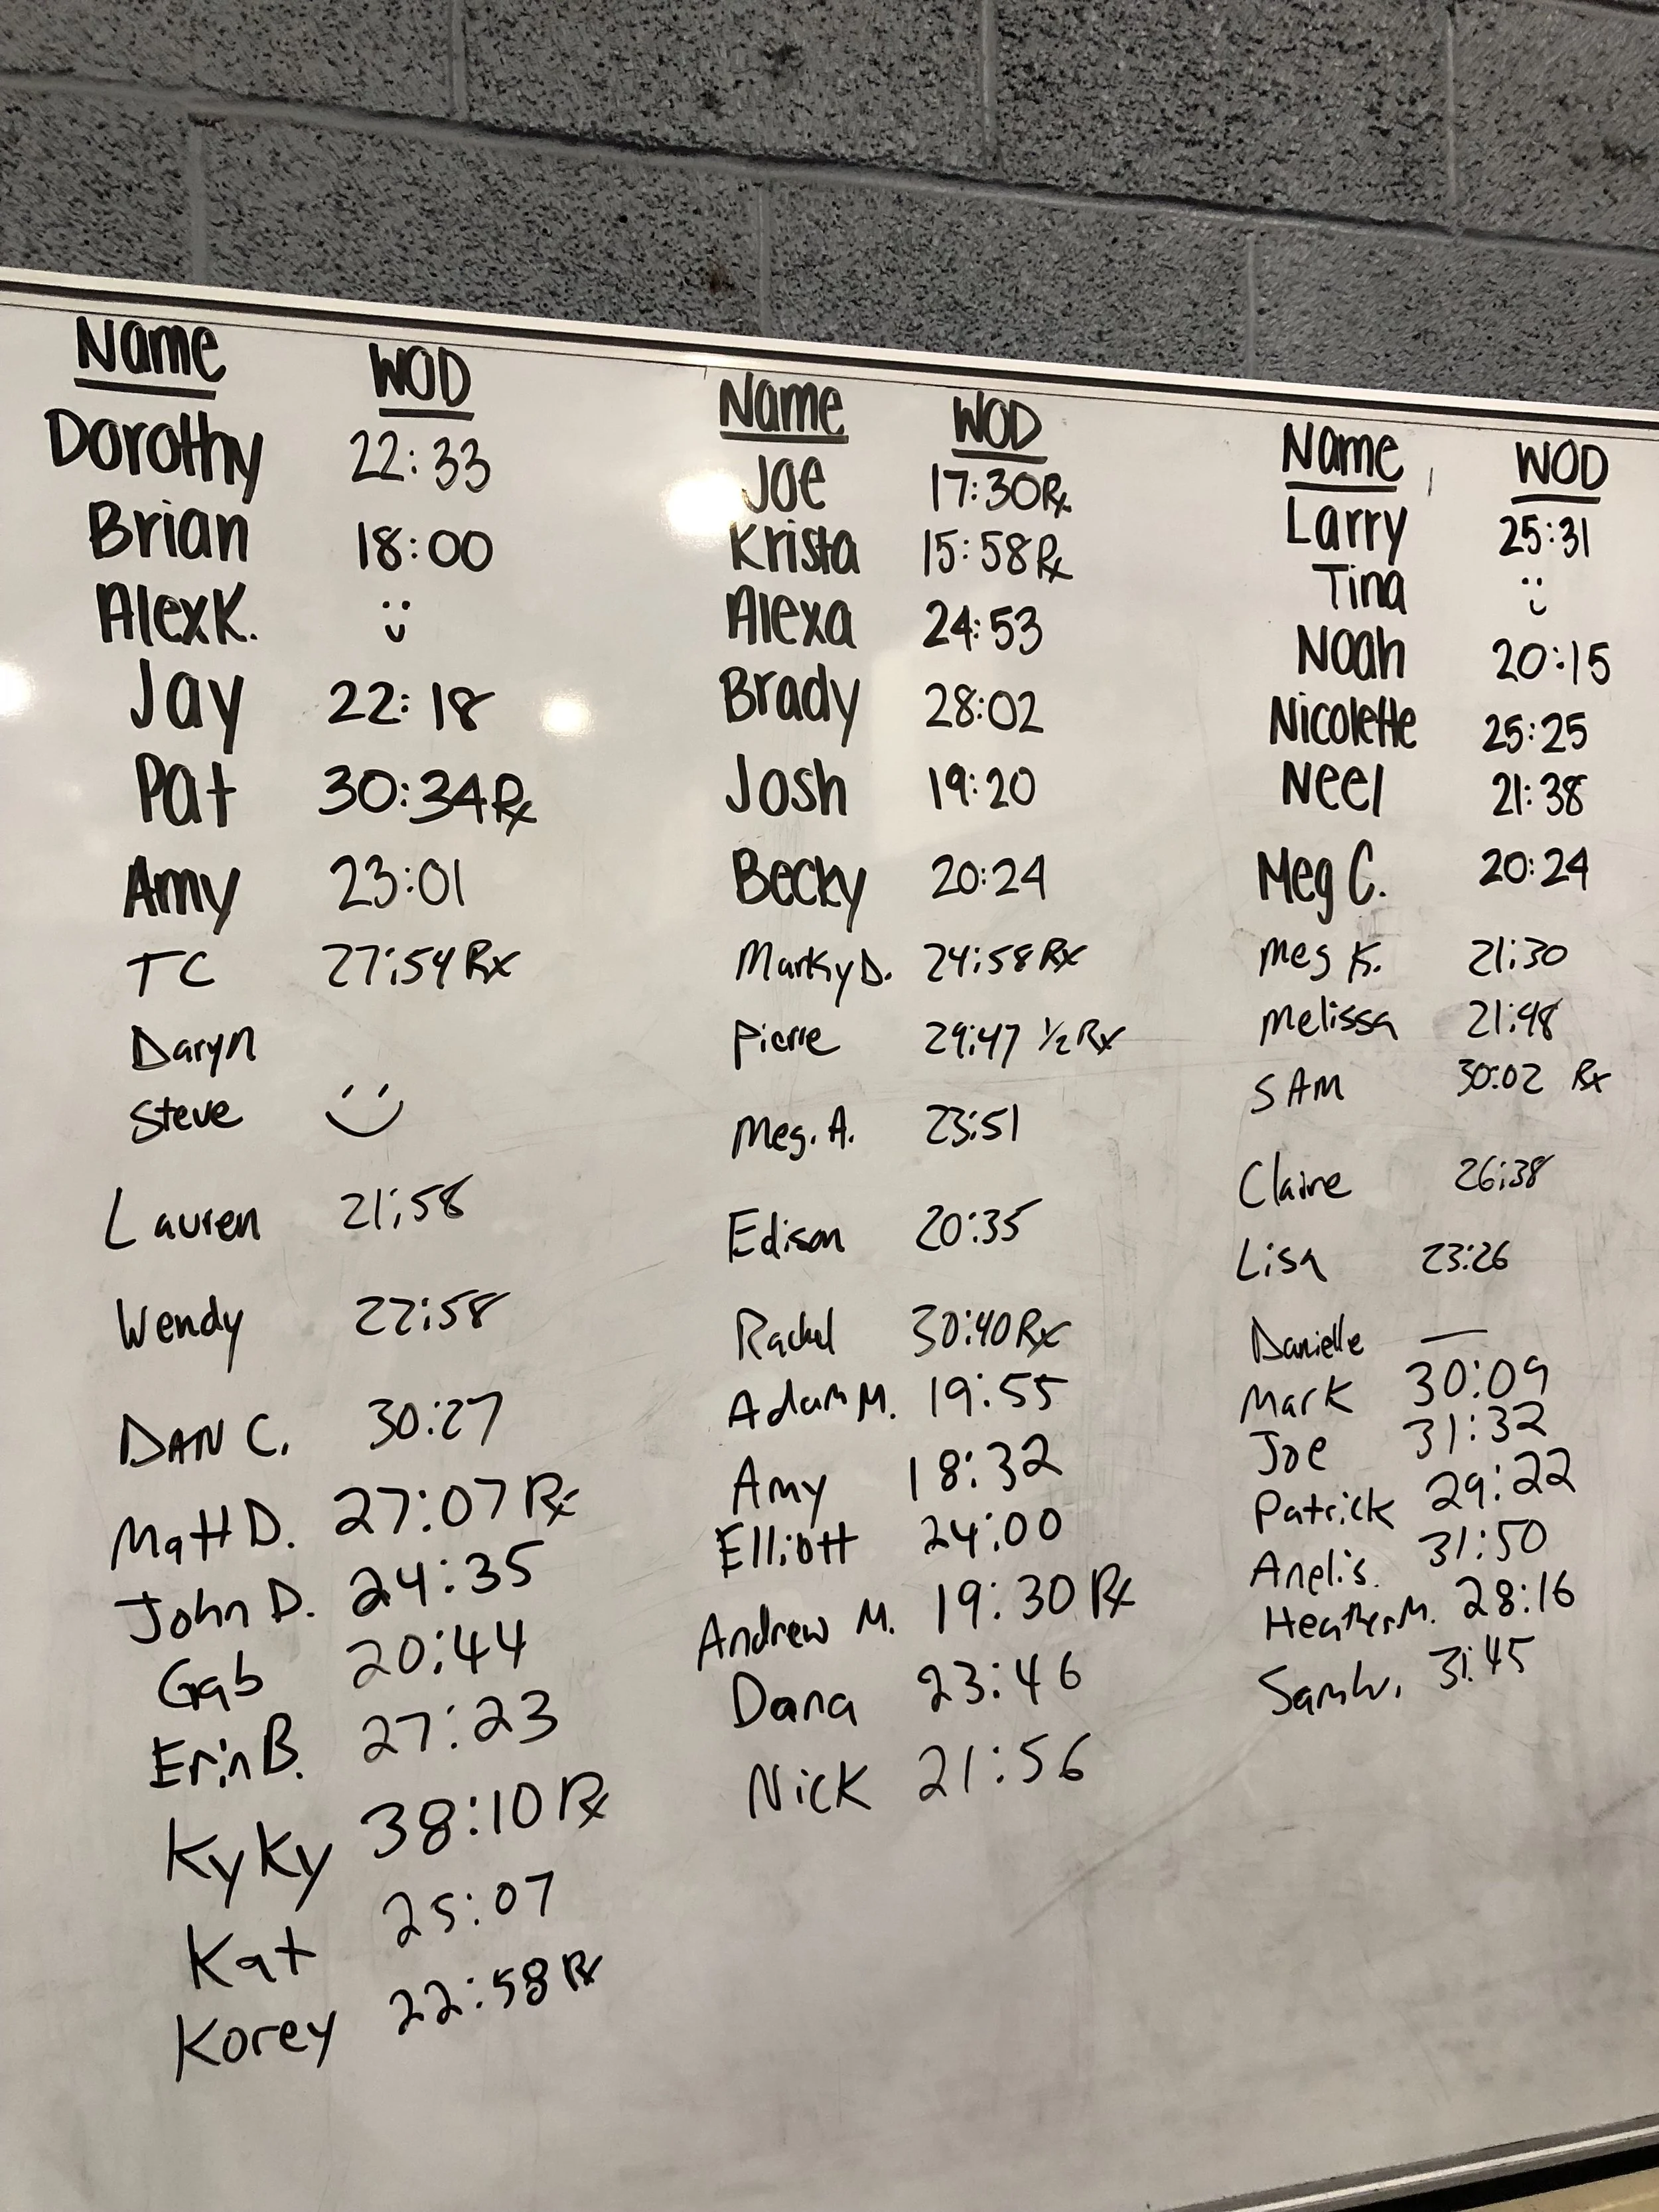 Name WOD
Dorothy 22:33
Brian 18:00
Alex K. :)
Jay 22:18
Pat 30:34 Rx
Amy 23:01
TC 27:54 Rx
Daryn
Steve :)
Lauren 21:58
Wendy 22:58
DAN C. 30:27
Matt D. 27:07 Rx
John D. 24:35
Gab 20:44
Erin B. 27:23
Kyky 38:10 Rx
Kat 25:07
Korey 22:58 Rx
Name WOD
Joe 17:30 Rx
Krista 15:58 Rx
Alexa 24:53
Brady 28:02
Josh 19:20
Becky 20:24
Marky D. 24:58 Rx
Pierre 29:47 1/2 Rx
Meg. A. 23:51
Edison 20:35
Rachel 30:40 Rx
Adam M. 19:55
Amy 18:32
Elliott 24:00
Andrew M. 19:30 Rx
Dana 23:46
Nick 21:56
Name WOD
Larry 25:31
Tina :)
Noah 20:15
Nicolette 25:25
Neel 21:38
Meg C. 20:24
Meg K. 21:30
Melissa 21:48
SAM 30:02 Rx
Claire 26:38
Lisa 23:26
Danielle —
Mark 30:09
Joe 31:32
Patrick 29:22
Anelis. 31:50
Heather M. 28:16
31:45